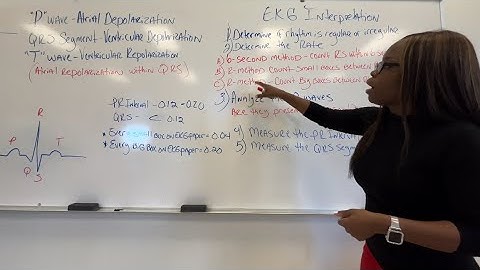 "P" WAVE - ATRIAL DEPOLARIZATION
QRS SEGMENT - VENTRICULAR DEPOLARIZATION
"T" WAVE - VENTRICULAR REPOLARIZATION
(ATRIAL REPOLARIZATION WITHIN QRS)
PR INTERVAL - 0.12 - 0.20
QRS - < 0.12
* EVERY SMALL BOX ON EKG PAPER = 0.04
* EVERY BIG BOX ON EKG PAPER = 0.20
R
P
T
Q
S
EKG INTERPRETATION
1) DETERMINE IF RHYTHM IS REGULAR OR IRREGULAR
2) DETERMINE THE RATE
A) 6-SECOND METHOD - COUNT RS WITHIN 6
B) R-METHOD COUNT SMALL BOXES BETWEEN
C) R-METHOD - COUNT BIG BOXES BETWEEN
3) ANALYZE WAVES
ARE THEY
4) MEASURE THE PR
5) MEASURE THE QRS SEGM